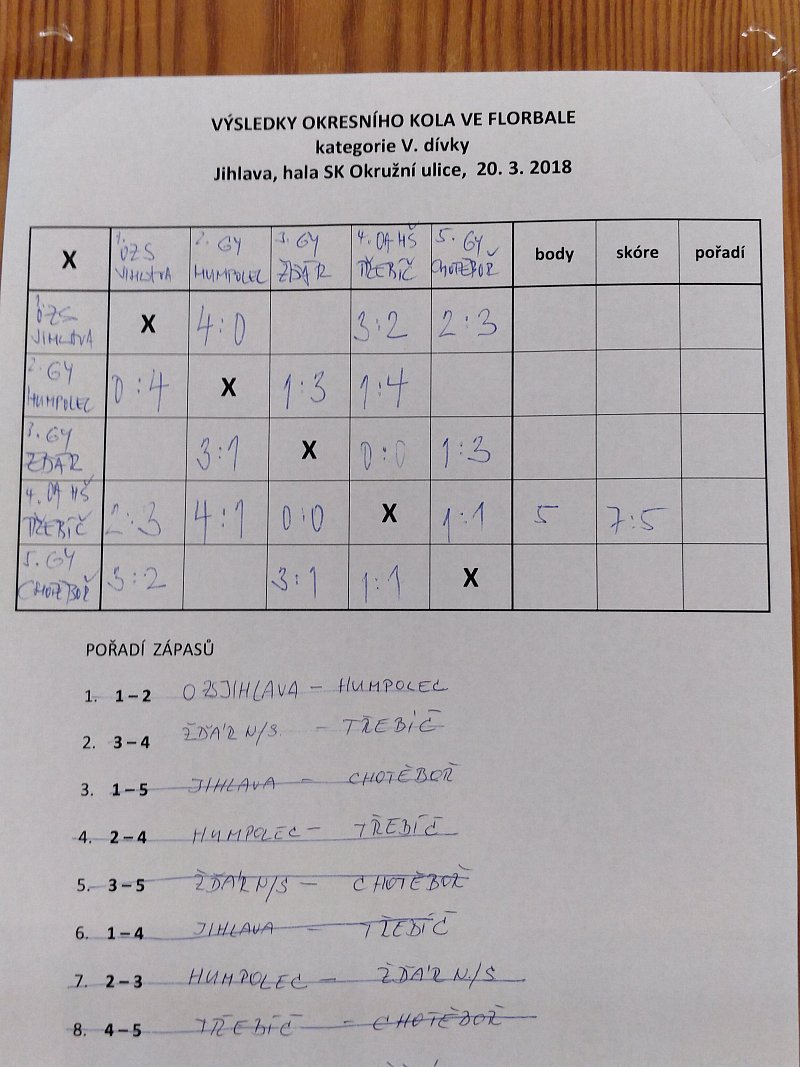 VÝSLEDKY OKRESNÍHO KOLA VE FLORBALE
kategorie V. dívky
Jihlava, hala SK Okružní ulice, 20. 3. 2018
X 1. OZS JIHLAVA 2. GY HUMPOLEC 3. GY ŽĎÁR 4. OA HŠ TŘEBÍČ 5. GY CHOTĚBOŘ body skóre pořadí
1. OZS JIHLAVA X 4:0 3:2 2:3
2. GY HUMPOLEC 0:4 X 1:3 1:4
3. GY ŽĎÁR 3:1 X 0:0 1:3
4. OA HŠ TŘEBÍČ 2:3 4:1 0:0 X 1:1 5 7:5
5. GY CHOTĚBOŘ 3:2 3:1 1:1 X
POŘADÍ ZÁPASŮ
1. 1 – 2 OZSJIHLAVA – HUMPOLEC
2. 3 – 4 ŽĎÁR N/S. – TŘEBÍČ
3. 1 – 5 JIHLAVA – CHOTĚBOŘ
4. 2 – 4 HUMPOLEC – TŘEBÍČ
5. 3 – 5 ŽĎÁR N/S – CHOTĚBOŘ
6. 1 – 4 JIHLAVA – TŘEBÍČ
7. 2 – 3 HUMPOLEC – ŽĎÁR N/S
8. 4 – 5 TŘEBÍČ – CHOTĚBOŘ